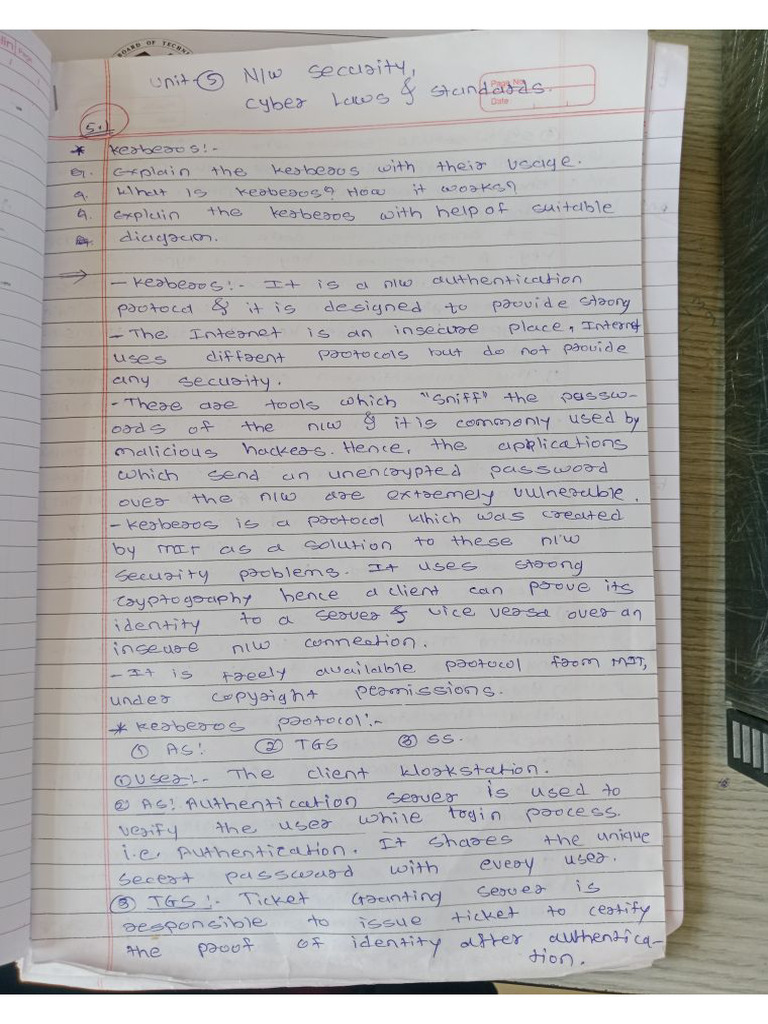 BOARD OF TECHN
Unit-⑤ N/w security,
Cyber Laws & standards.
Page No.
Date
5.1
* Kerberos:-
Q. Explain the kerberos with their usage.
Q. What is kerberos? How it works?
Q. Explain the kerberos with help of suitable
diagram.
→ - Kerberos:- It is a n/w authentication
protocol & it is designed to provide strong
- The Internet is an insecure place, Internet
uses diffrent protocols but do not provide
any security.
- There are tools which "sniff" the passw-
ords of the n/w & it is commonly used by
malicious hackers. Hence, the applications
which send an unencrypted password
over the n/w are extremely vulnerable.
- Kerberos is a protocol which was created
by MIT as a solution to these n/w
security problems. It uses strong
cryptography hence a client can prove its
identity to a server & vice versa over an
insecure n/w connection.
- It is freely available protocol from MIT,
under copyright permissions.
* Kerberos protocol:-
① AS: ② TGS ③ SS.
① User:- The client Workstation.
② AS: Authentication server is used to
verify the user while login process.
i.e. Authentication. It shares the unique
secert password with every user.
③ TGS:- Ticket Granting server is
responsible to issue ticket to certify
the proof of identity after authentica-
tion.